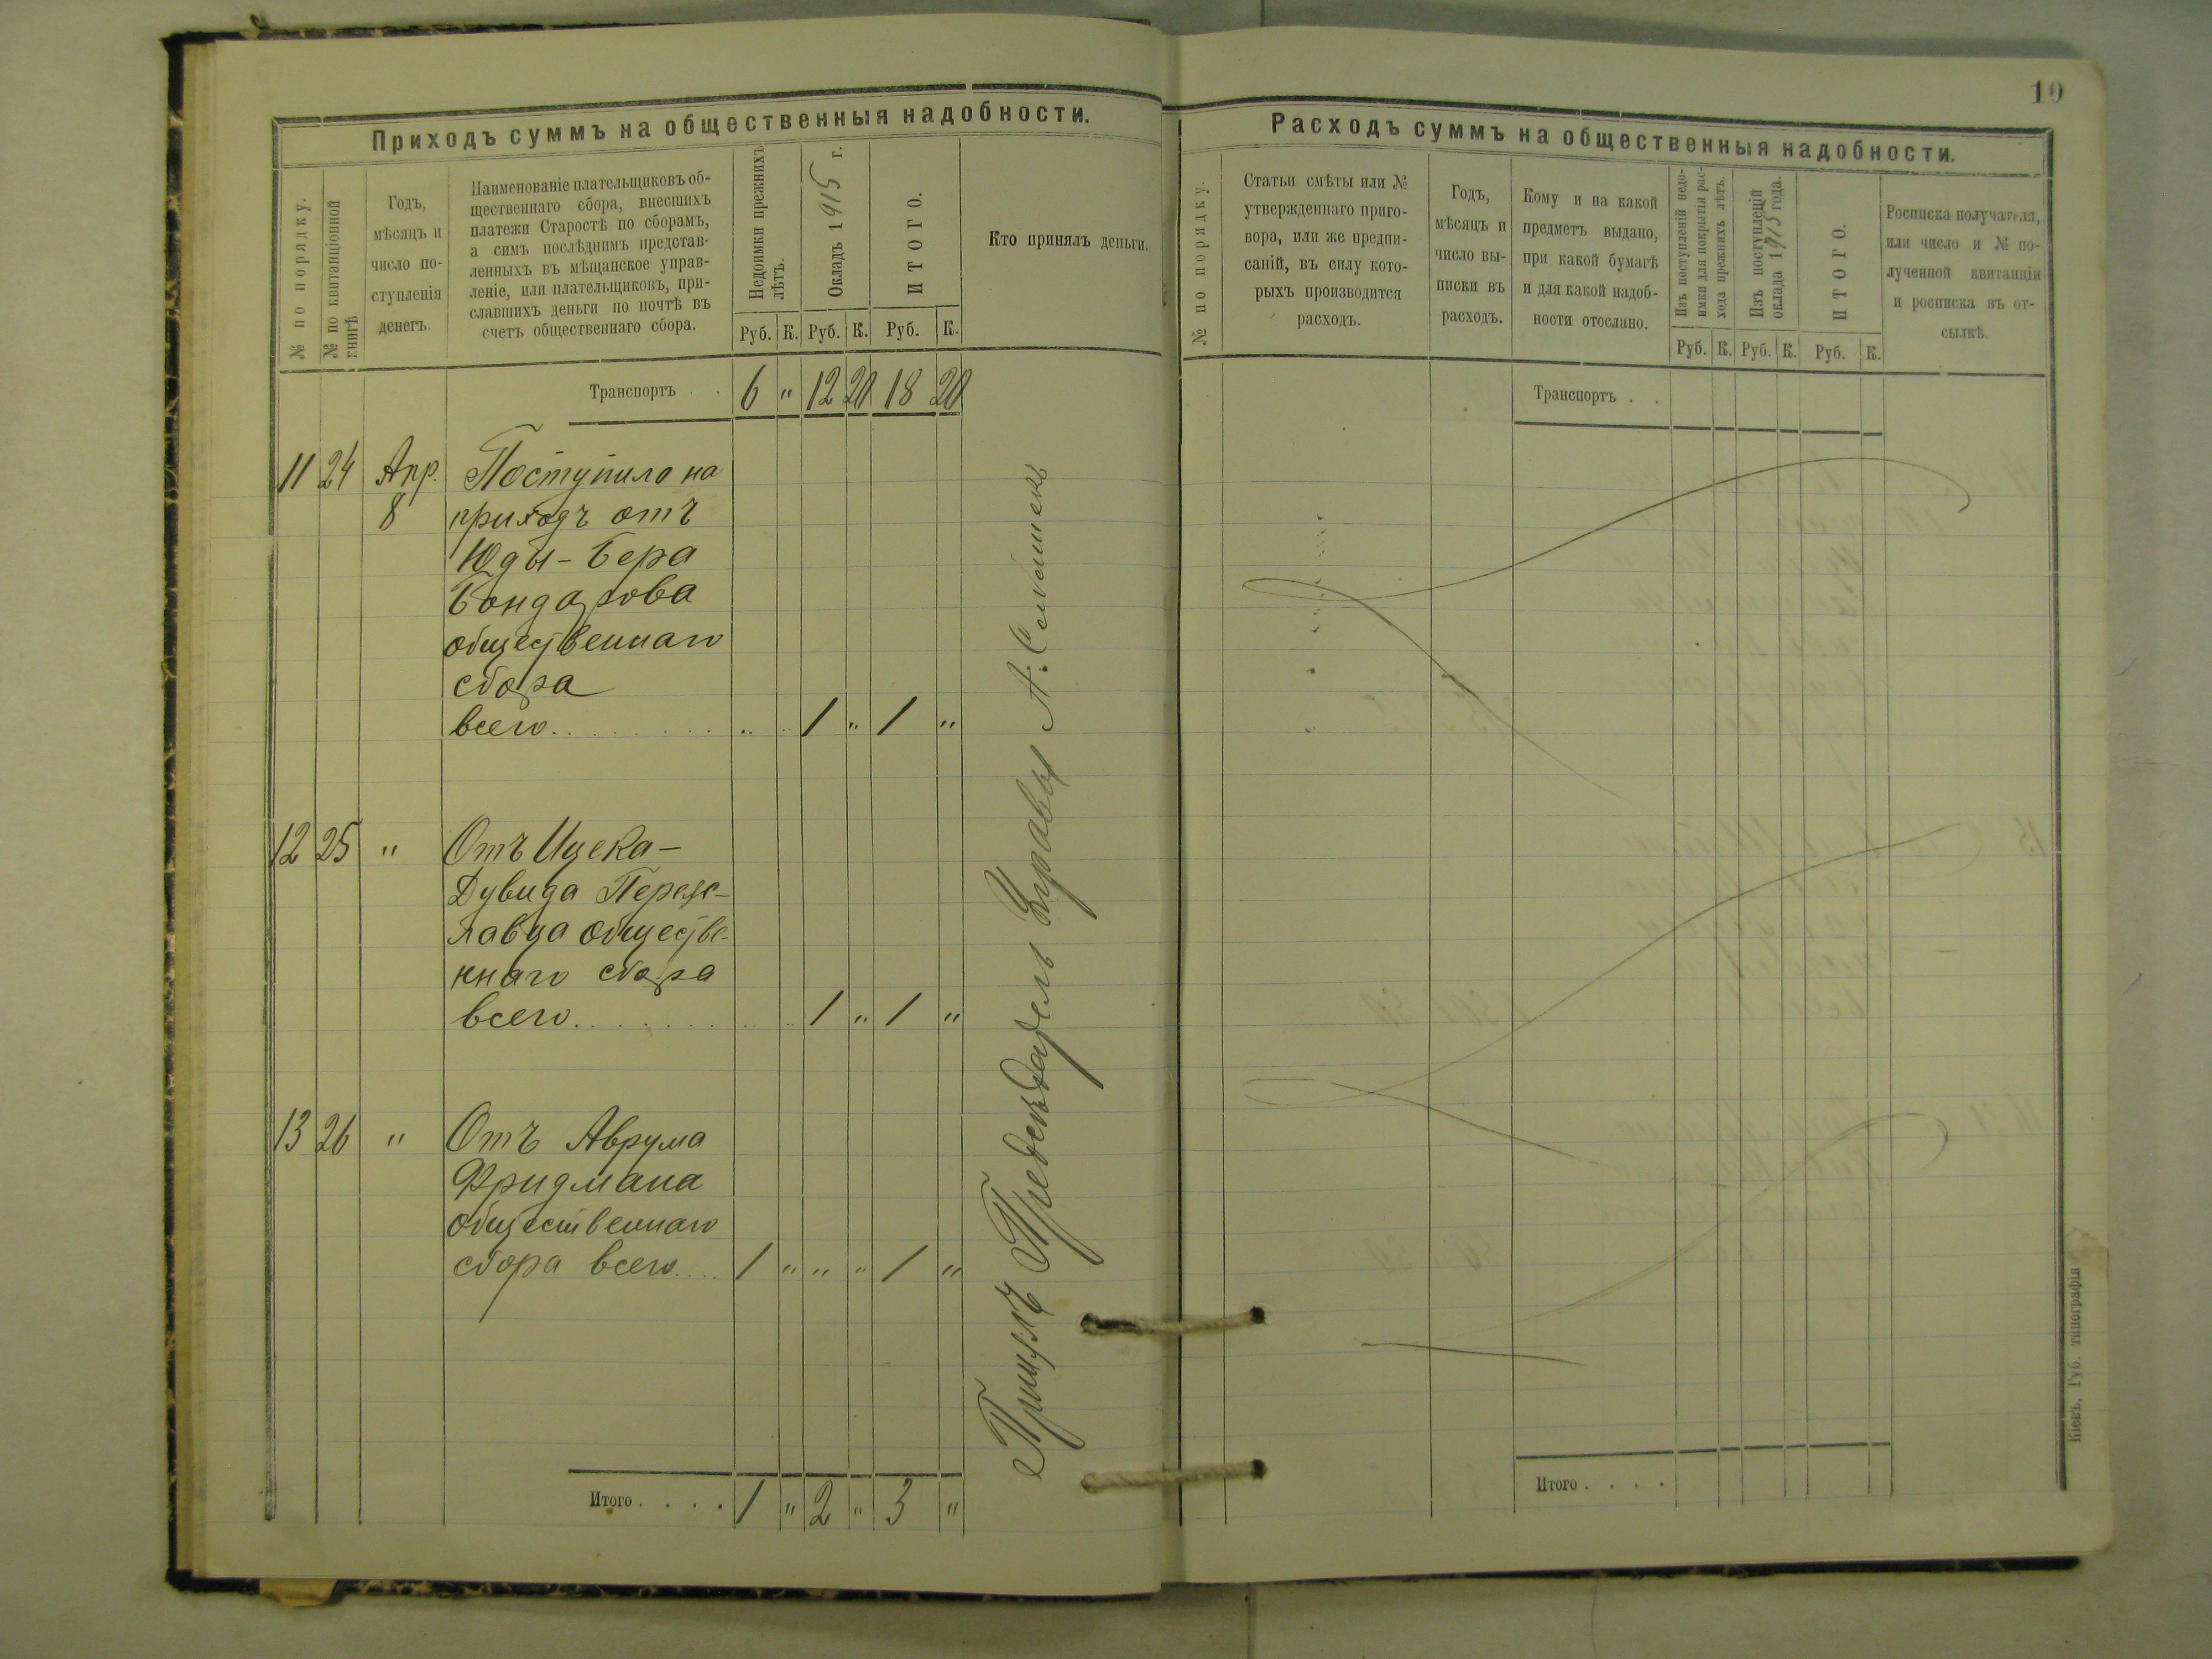 10
Приходъ суммъ на общественныя надобности.
№ по порядку.
№ по квитанціонной
книгѣ
Годъ,
мѣсяцъ и
число по-
ступленія
денегъ.
Наименованіе плательщиковъ об-
щественнаго сбора, внесшихъ
платежи Старостѣ по сборамъ,
а симъ послѣднимъ представ-
ленныхъ въ мѣщанское управ-
леніе, или плательщиковъ, при-
славшихъ деньги по почтѣ въ
счетъ общественнаго сбора.
Недоимки прежнихъ
лѣтъ.
Окладъ 1915 г.
ИТОГО.
Кто принялъ деньги.
Руб. К. Руб. К. Руб. К.
Транспортъ . . 6 " 12 20 18 20
11 24 Апр. Поступило на
8 приходъ отъ
Юды-Бера
Бондарова
общественнаго
сбора
всего. . . . . . . . . " " 1 " 1 "
12 25 " Отъ Ицека-
Дувида Переяс-
лавца обществе-
ннаго сбора
всего. . . . . . . . . 1 " 1 "
13 26 " Отъ Аврума
Фридмана
общественнаго
сбора всего.... 1 " " " 1 "
Итого . . . . 1 " 2 " 3 "
Предсѣдатель Управы А.
Расходъ суммъ на общественныя надобности.
№ по порядку.
Статьи смѣты или №
утвержденнаго приго-
вора, или же предпи-
саній, въ силу кото-
рыхъ производится
расходъ.
Годъ,
мѣсяцъ и
число вы-
писки въ
расходъ.
Кому и на какой
предметъ выдано,
при какой бумагѣ
и для какой надоб-
ности отослано.
Изъ поступленій недо-
имки для покрытія рас-
хода прежнихъ лѣтъ.
Изъ поступленій
оклада 1915 года.
ИТОГО.
Росписка получателя,
или число и № по-
лученной квитанціи
и росписка въ от-
сылкѣ.
Руб. К. Руб. К. Руб. К.
Транспортъ . .
Итого . . . .
Кіевъ, Губ. типографія